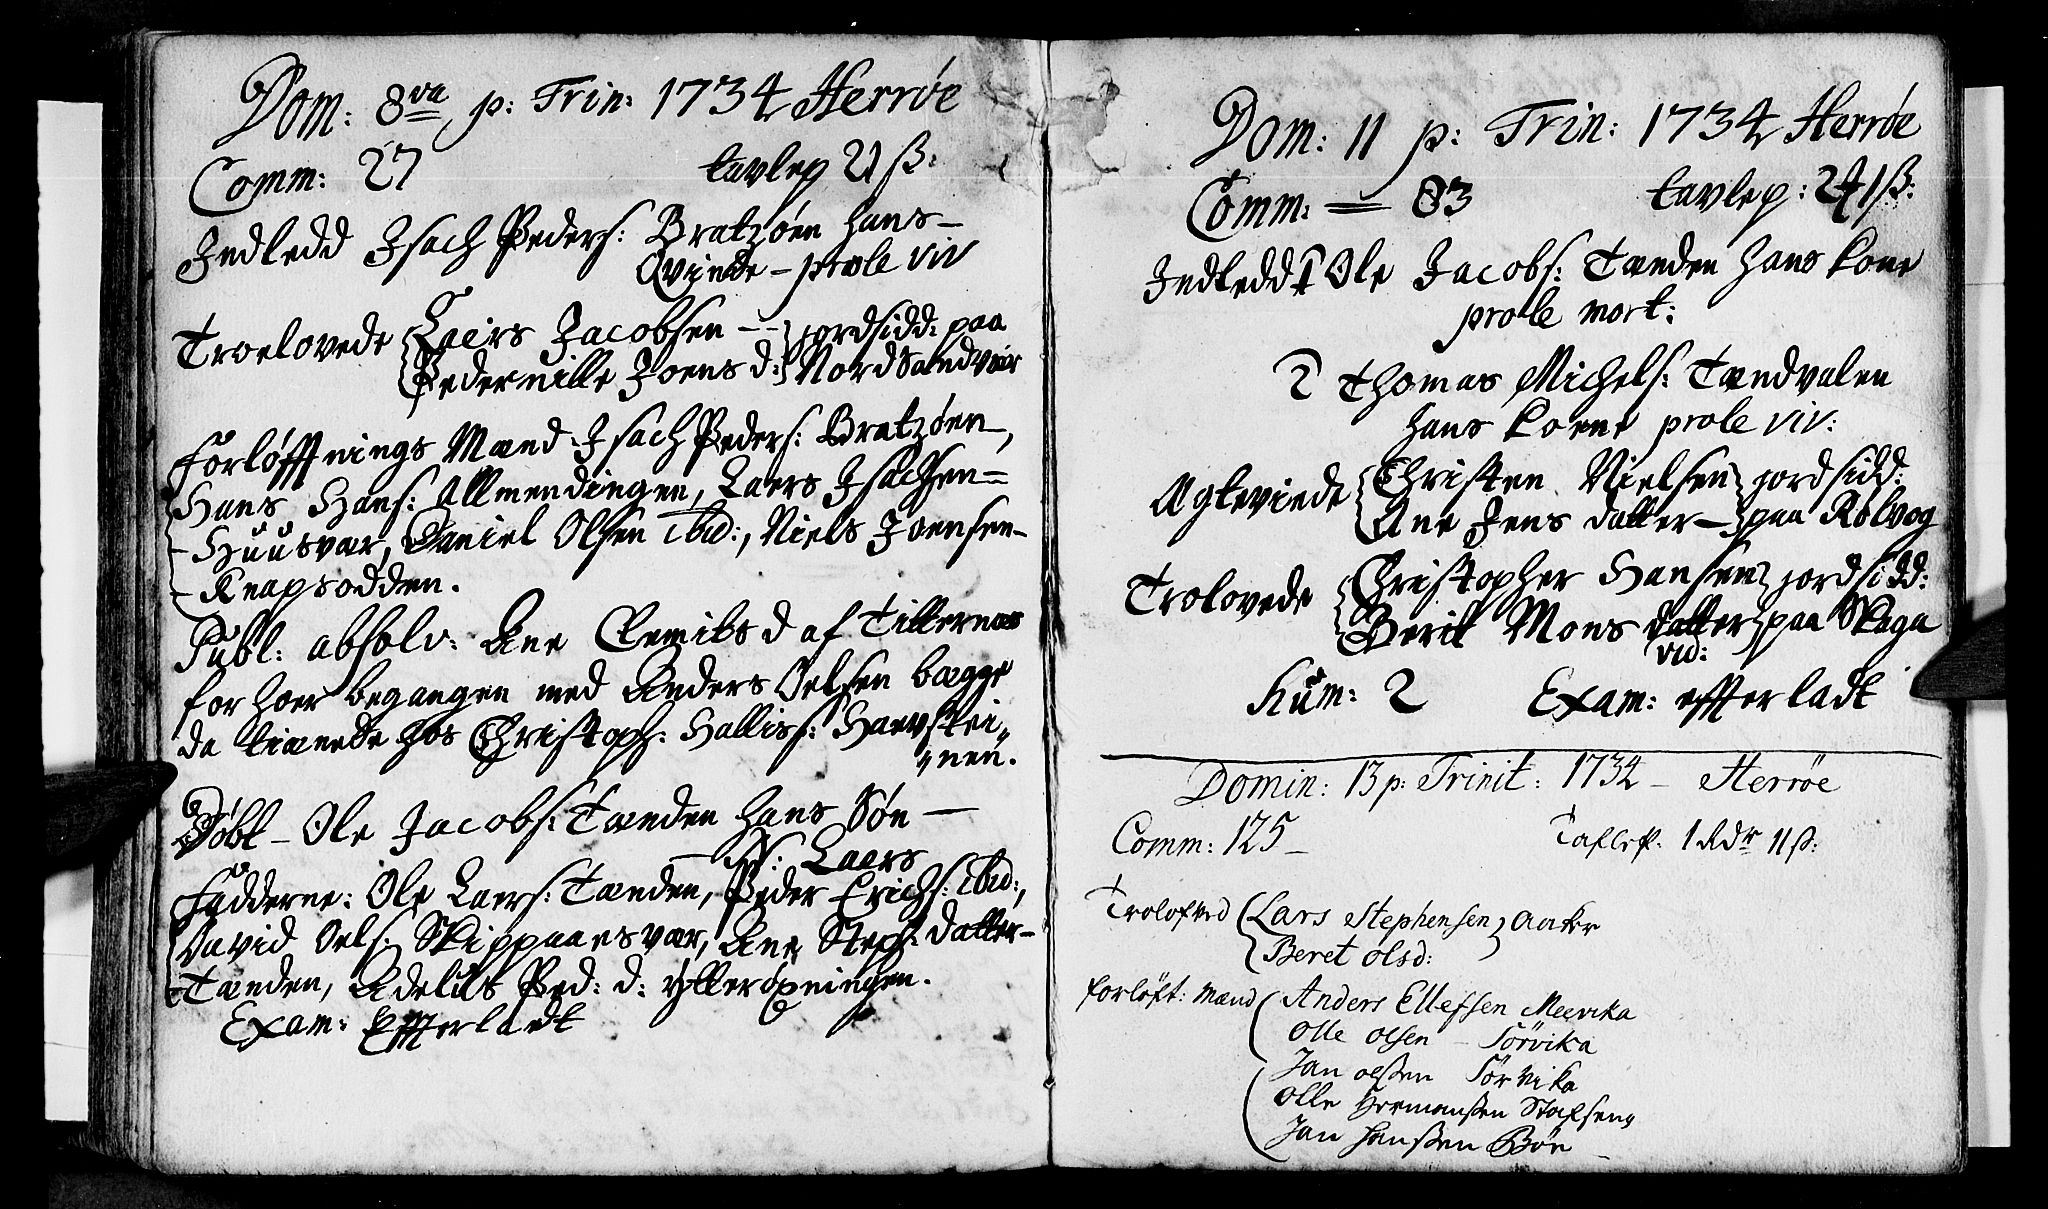 Dom: 8va p: Trin: 1734 Herrøe
Comm: 27 tavlep 21 ß:
Indledd Isach Peders: Bratzøen hans
Qvinde - prole viv
Troelovede Laers Jacobsen -- jordsidd: paa
Pedernille Joens d: Nord Sandvær
Forløffnings Mænd Isach Peders: Bratzøen,
Hans Hans: Allmendingen, Laers Isachsen
Huusvær, Daniel Olsen ibid:, Niels Joensen
Knapsodden.
Publ: absolv: Ane d af Tilternes
for hoer begangen med Anders Oelsen begge
da tienede hos Christoph: Hallifs: Haevstei
nen.
Døbt - Ole Jacobs: Tænden hans Søn -
Laers
Fadderne: Ole Laers: Tænden, Peder Erichs: ibid:,
David Oels: Skippaaesvær, Ane Steph: datter
Tænden, Adelus Ped: d: Ytterøpningen.
Exam: Effterladt
Dom: 11 p: Trin: 1734 Herrøe
Comm: = 83 tavlep: 2 1 ß:
Indledd 1 Ole Jacobs: Tænden hans kone
prole mort:
2 Thomas Michels: Tændvalen
hans koene prole viv:
Agteviede Christen Nielsen jordsidd:
Ane Jens datter - paa Rølvog
Trolovede Christopher Hansen jordsidd:
Berit Mons datter paa Skaga
vid:
Hum: 2 Exam: effterladt
Domin: 13 p: Trinit: 1734 - Herrøe
Comm: 125 - Taflep. 1 Rdr 11 ß:
Trolofved Lars Stephensen Aaker
Beret Olsd:
forløft: Mænd Anders Ellefsen Meevika
Olle Olsen - Sörvika
Jan olssen Sörvika
Olle Hermanssen Stafseng
Jan Hanssen Bön